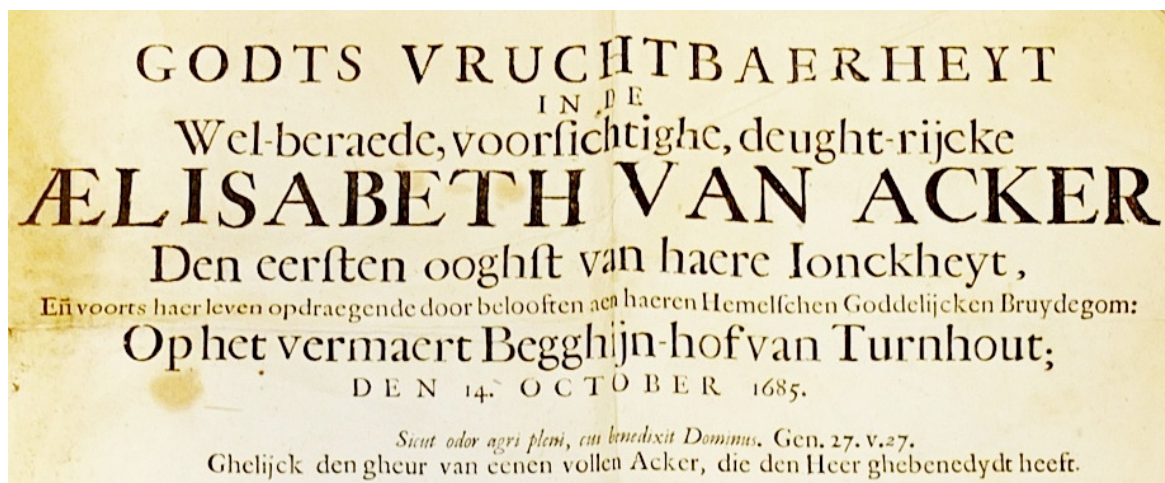 GODTS VRUCHTBAERHEYT
IN DE
Wel-beraede, voorſichtighe, deught-rijcke
ÆLISABETH VAN ACKER
Den eerſten ooghſt van haere Ionckheyt,
En̄ voorts haer leven opdraegende door belooften aen haeren Hemelſchen Goddelijcken Bruydegom:
Op het vermaert Begghijn-hof van Turnhout;
DEN 14. OCTOBER 1685.
Sicut odor agri pleni, cui benedixit Dominus. Gen. 27. v. 27.
Ghelijck den gheur van eenen vollen Acker, die den Heer ghebenedydt heeft.